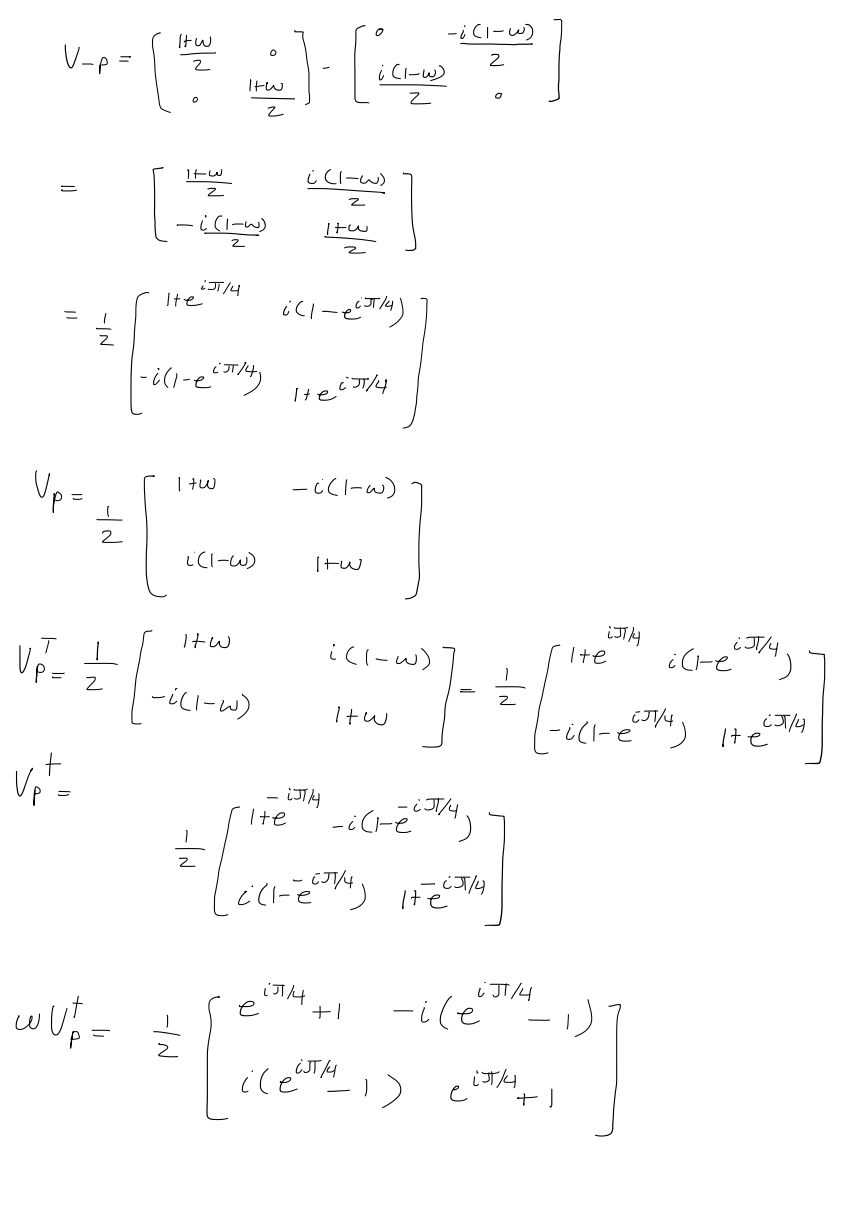 V_{-P} = [ \frac{1+ω}{2}  0 ; 0  \frac{1+ω}{2} ] - [ 0  \frac{-i(1-ω)}{2} ; \frac{i(1-ω)}{2}  0 ]
= [ \frac{1+ω}{2}  \frac{i(1-ω)}{2} ; \frac{-i(1-ω)}{2}  \frac{1+ω}{2} ]
= \frac{1}{2} [ 1+e^{iπ/4}  i(1-e^{iπ/4}) ; -i(1-e^{iπ/4})  1+e^{iπ/4} ]
V_P = \frac{1}{2} [ 1+ω  -i(1-ω) ; i(1-ω)  1+ω ]
V_P^T = \frac{1}{2} [ 1+ω  i(1-ω) ; -i(1-ω)  1+ω ] = \frac{1}{2} [ 1+e^{iπ/4}  i(1-e^{iπ/4}) ; -i(1-e^{iπ/4})  1+e^{iπ/4} ]
V_P^† = \frac{1}{2} [ 1+e^{-iπ/4}  -i(1-e^{-iπ/4}) ; i(1-e^{-iπ/4})  1+e^{-iπ/4} ]
ωV_P^† = \frac{1}{2} [ e^{iπ/4}+1  -i(e^{iπ/4}-1) ; i(e^{iπ/4}-1)  e^{iπ/4}+1 ]